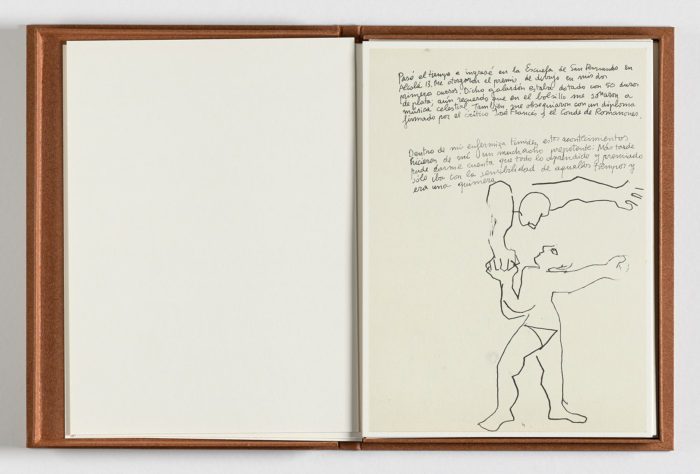 Pasó el tiempo e ingresé en la Escuela de San Fernando en
Alcalá 13. Me otorgaron el premio de dibujo en mis dos
primeros cursos. Dicho galardón estaba dotado con 50 duros
de plata; aún recuerdo que en el bolsillo me sonaron a
música celestial. También me obsequiaron con un diploma
firmado por el crítico José Francés y el Conde de Romanones.
Dentro de mi enfermiza timidez estos acontecimientos
hicieron de mí un muchacho prepotente. Más tarde
pude darme cuenta que todo lo aprendido y premiado
sólo iba con la sensibilidad de aquellos tiempos y
era una quimera.